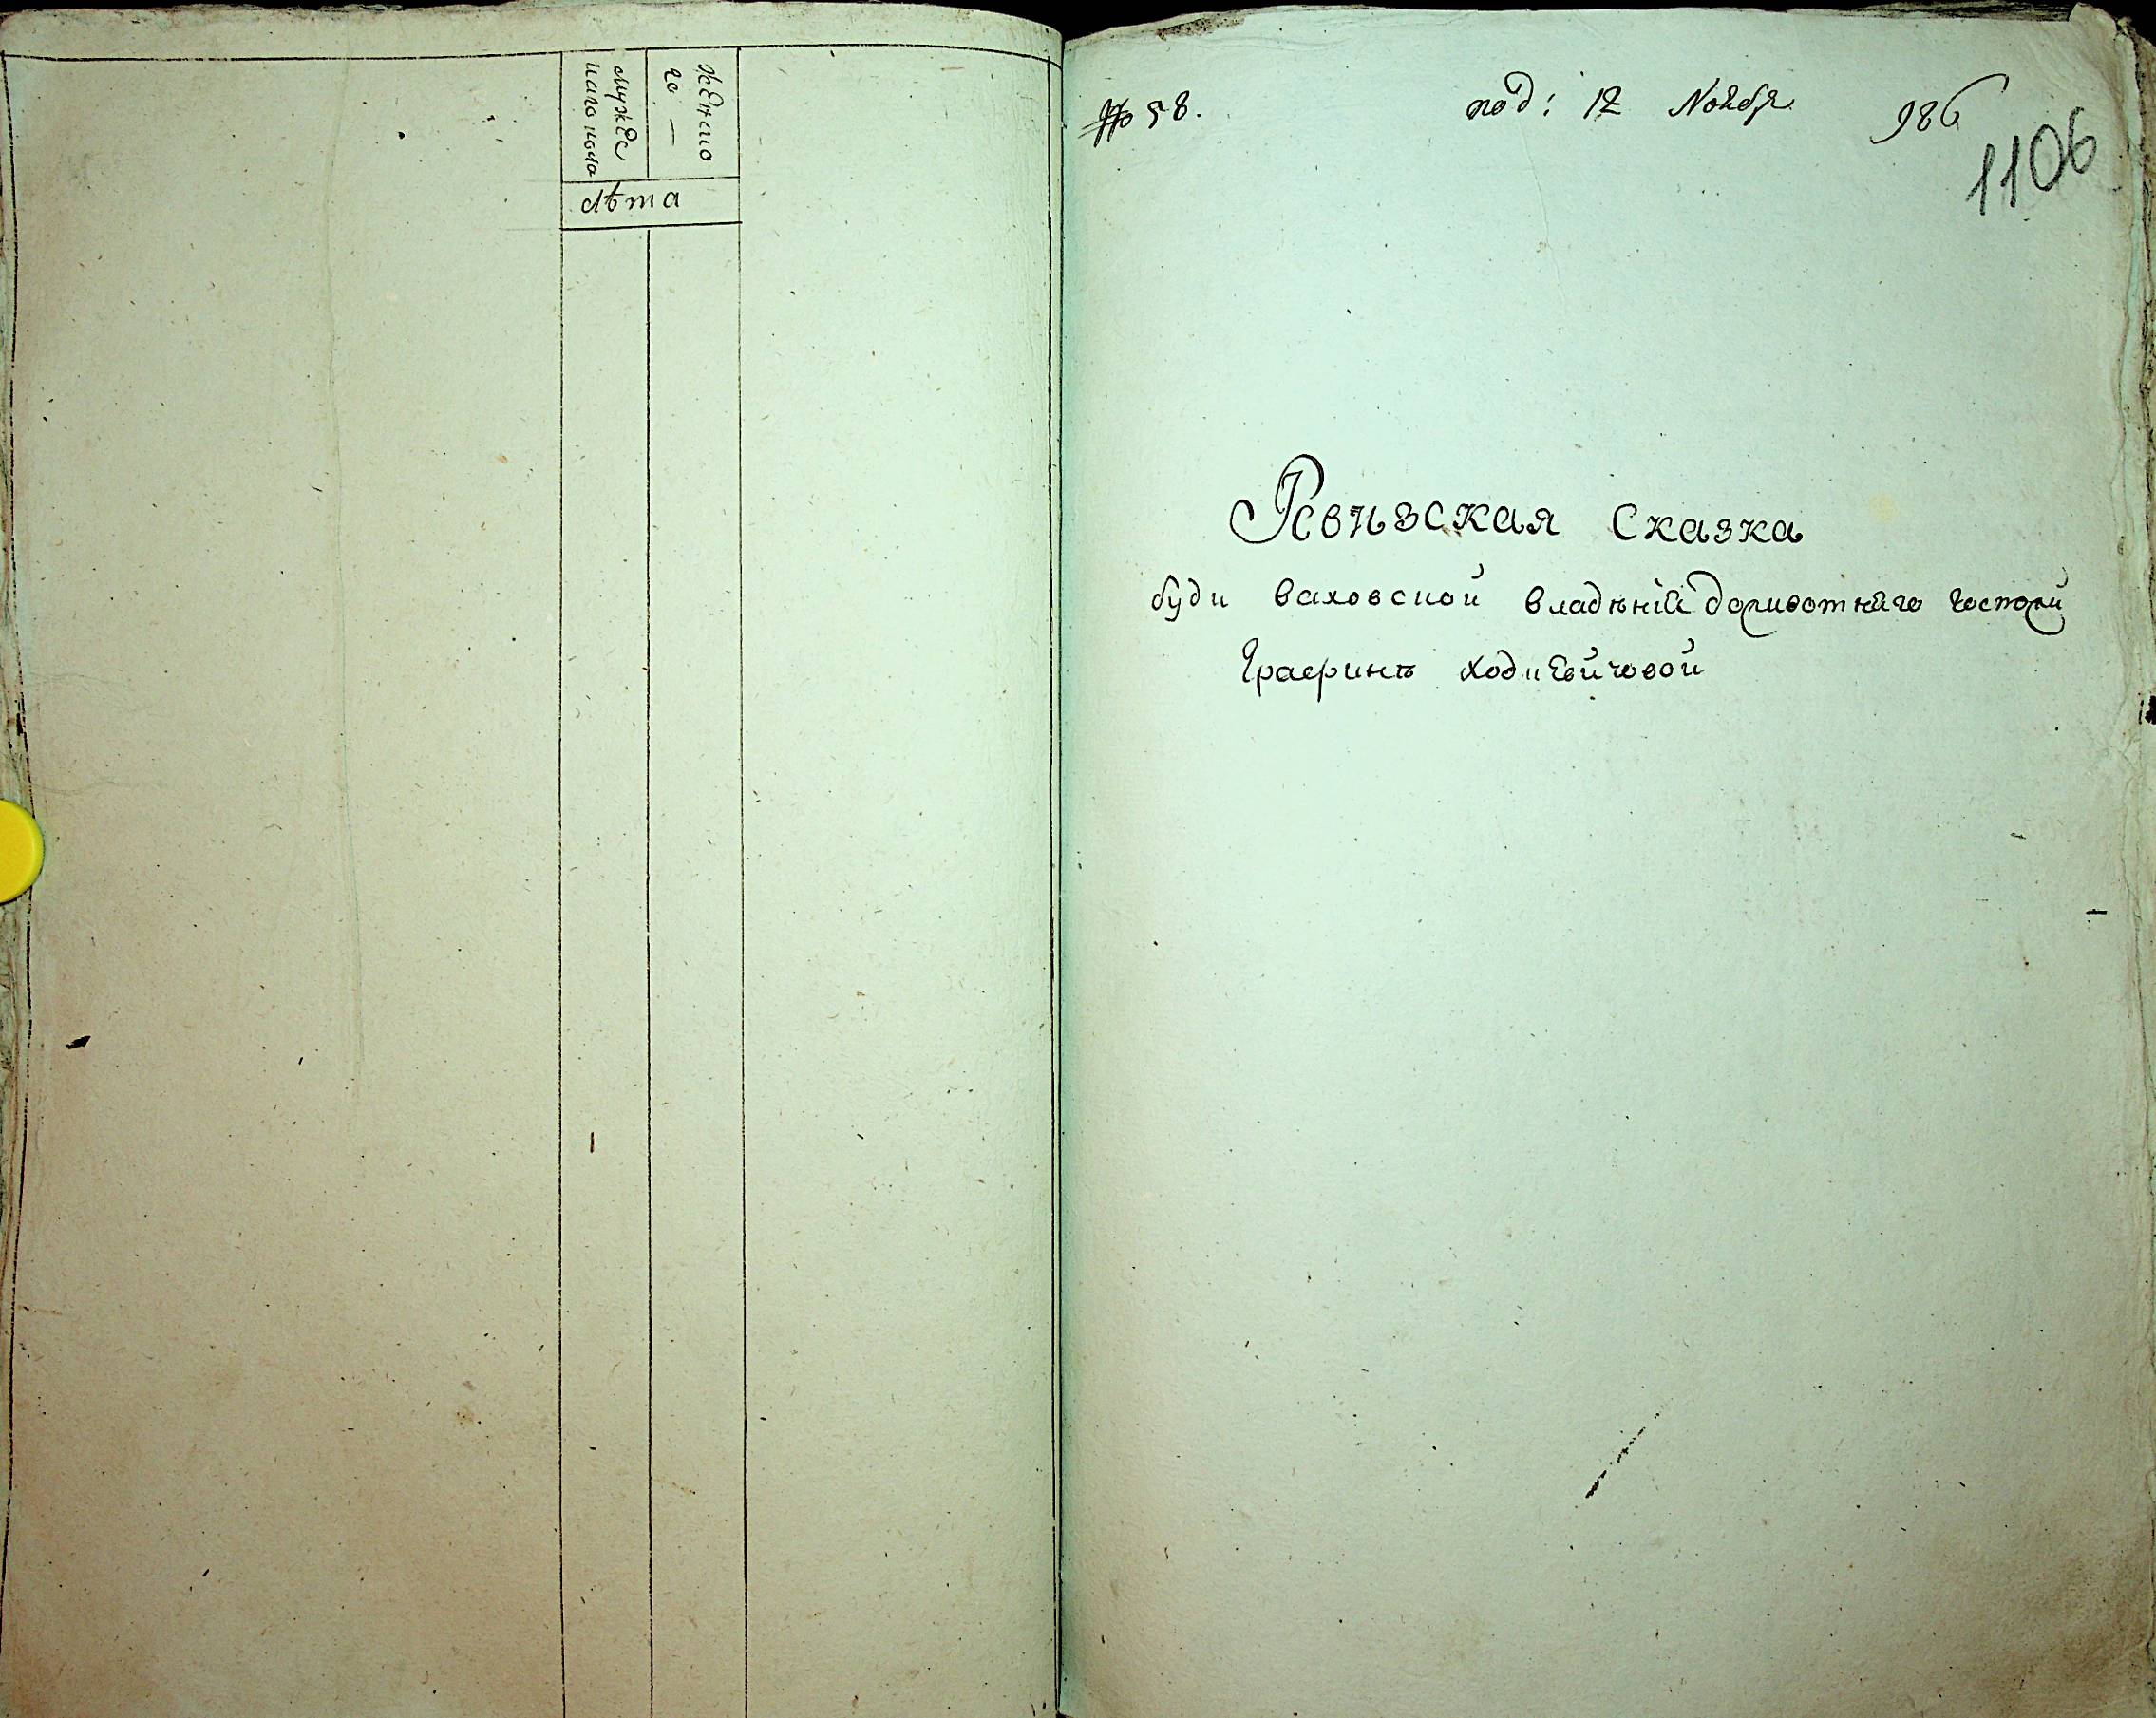 мужес
каго пола
женско
го —
лѣта
№ 58.
под: 12 Ноября
986
1106
Ревизская Сказка
буди Ваховской владѣнія доживотняго Госпожи
Графинѣ Ходкевичовой